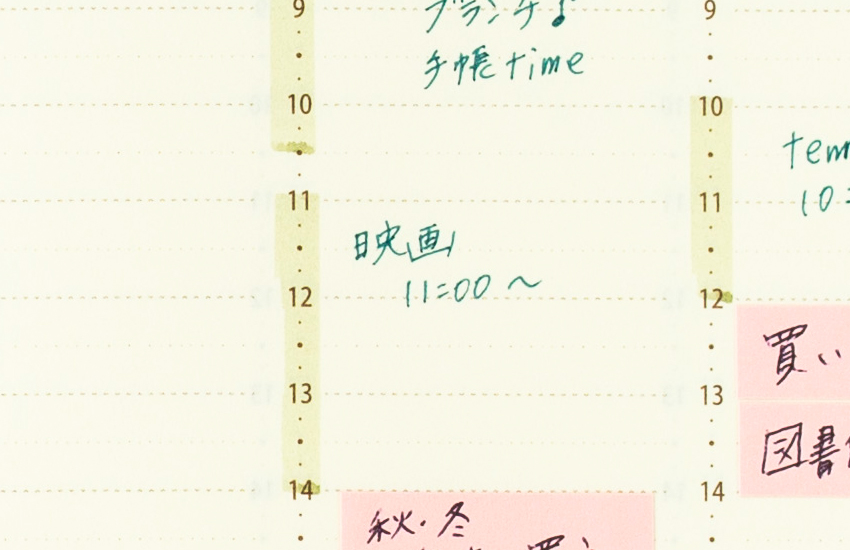 9
ブランチ♪
手帳time
10
11
映画
11:00 〜
12
13
14
秋・冬
9
10
11
10:
12
買い
13
図書
14